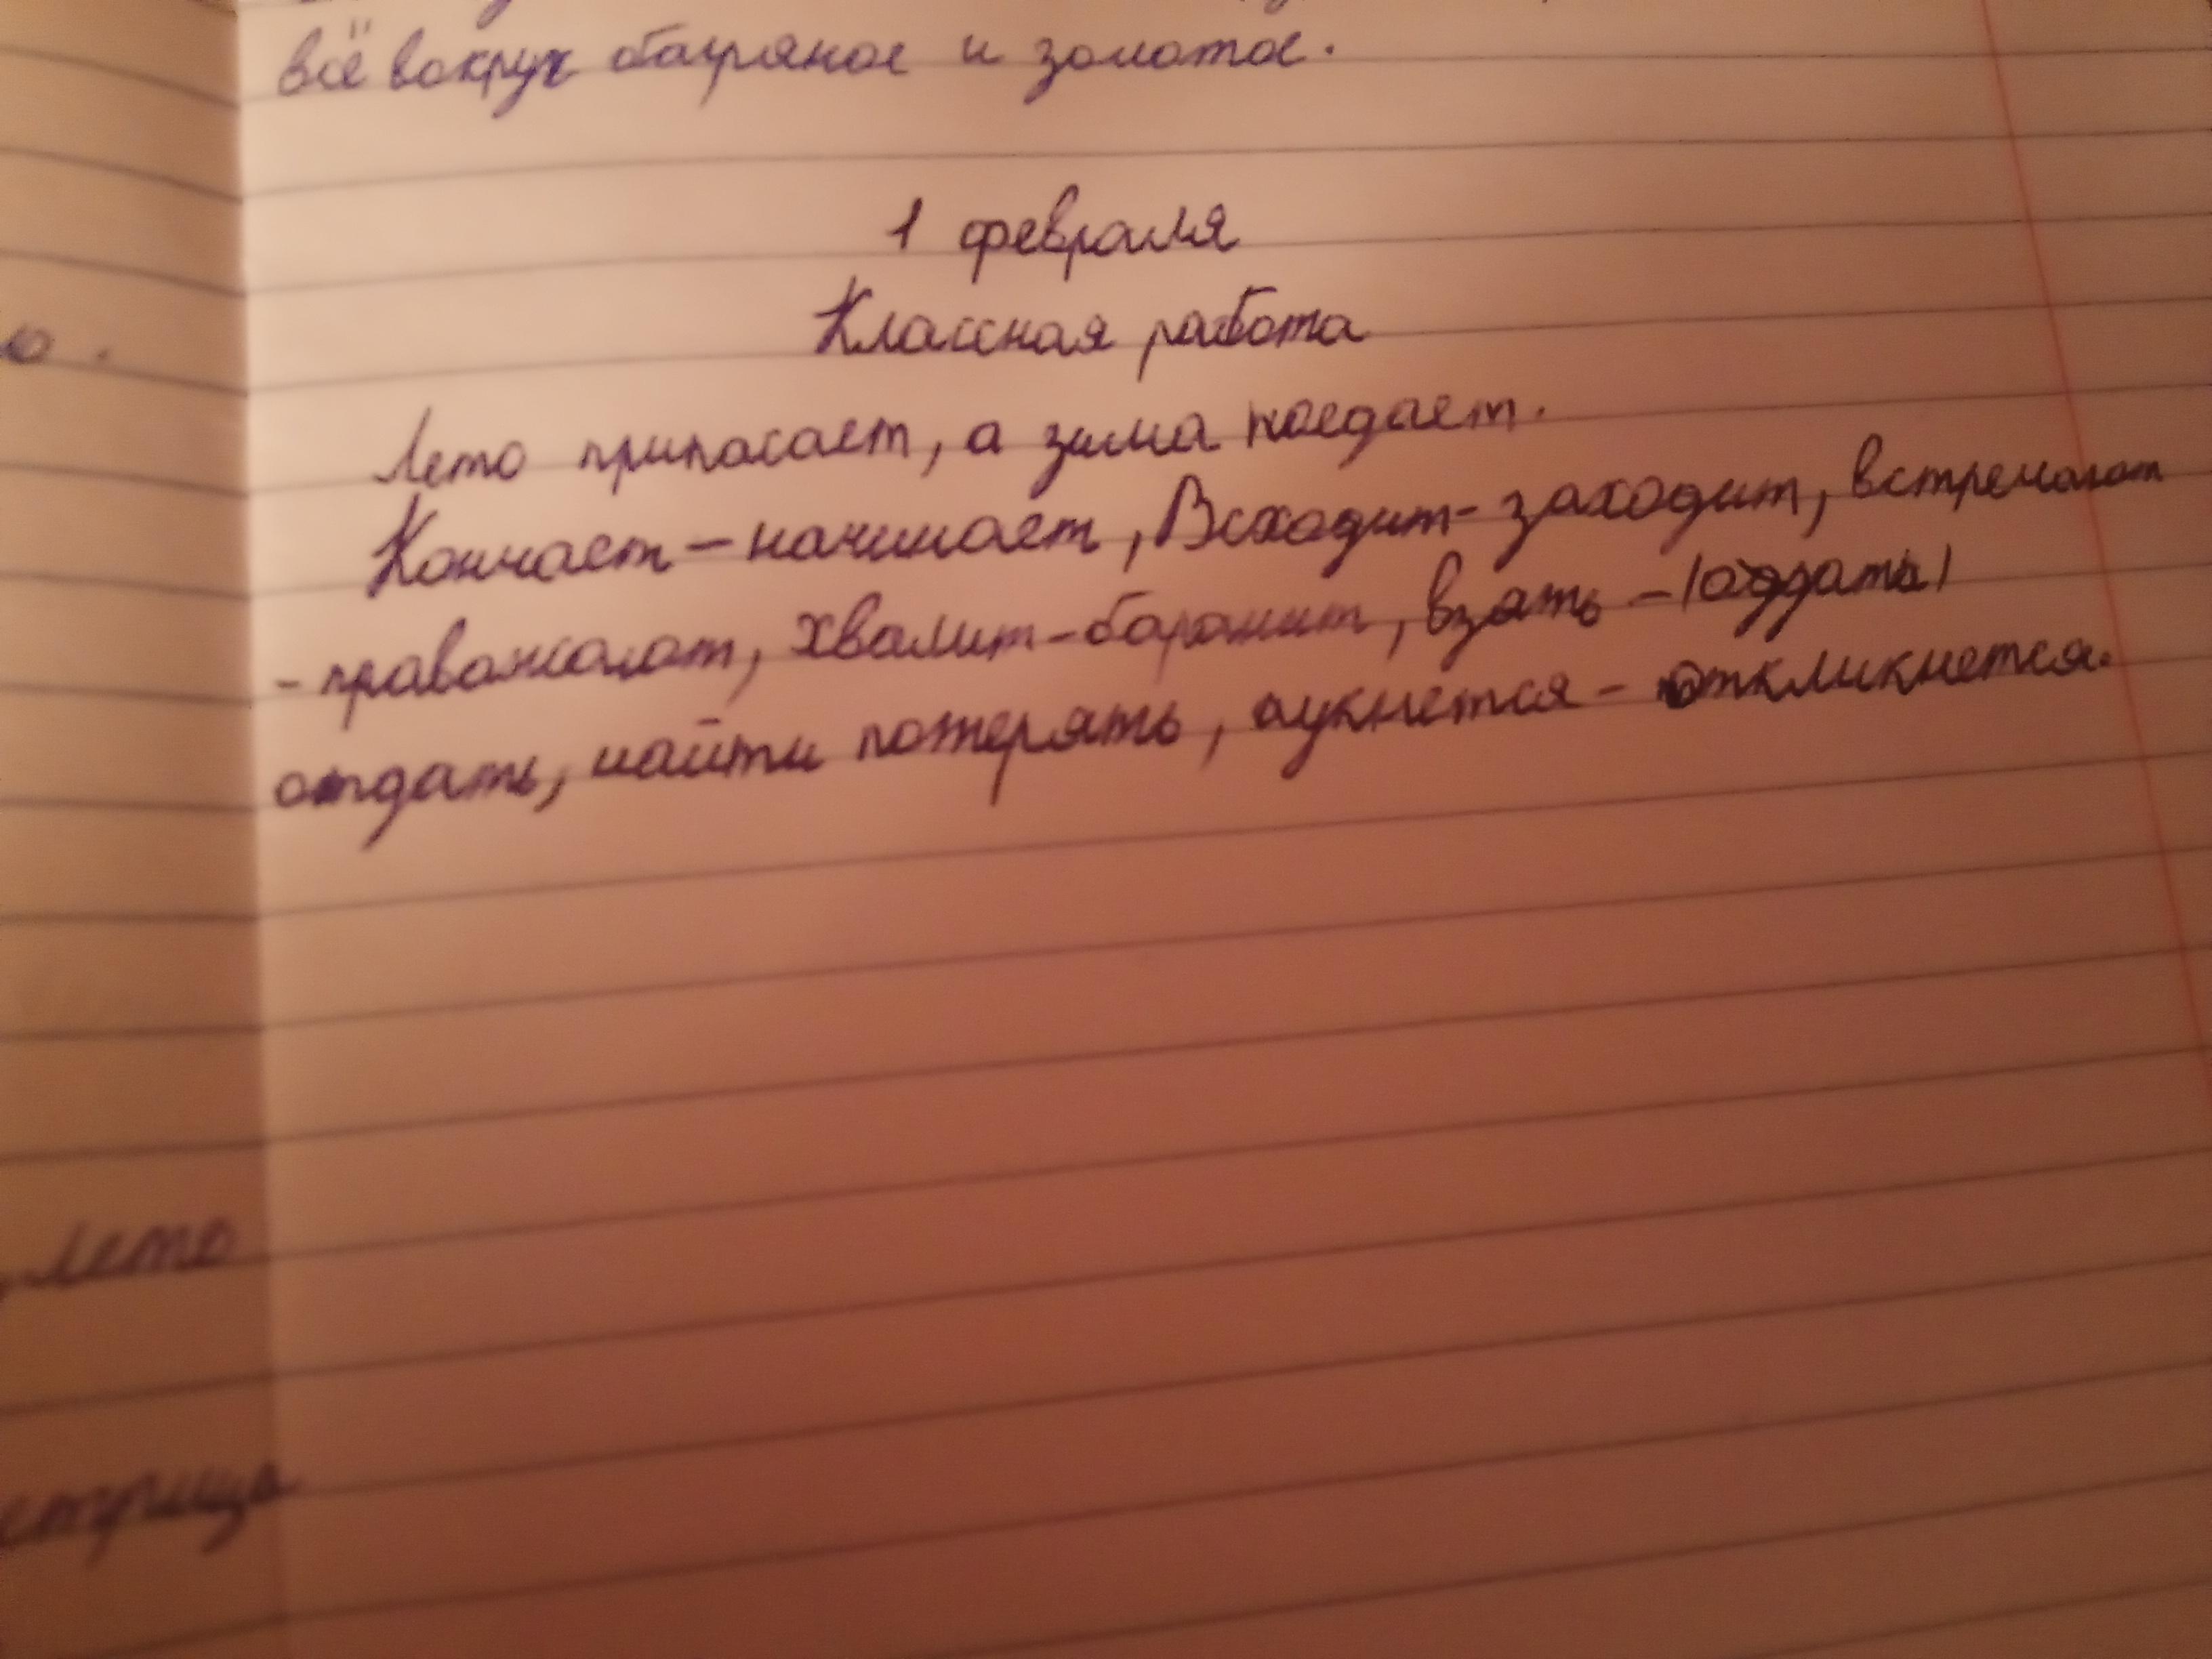 всё вокруг багряное и золотое.
1 февраля
Классная работа
Лето припасает, а зима поедает.
Кончает - начинает, Всходит - заходит, встречают
- правожают, хвалит - баранит, взять - (оддать)
отдать, найти потерять, аукнется - откликнется.
Лето